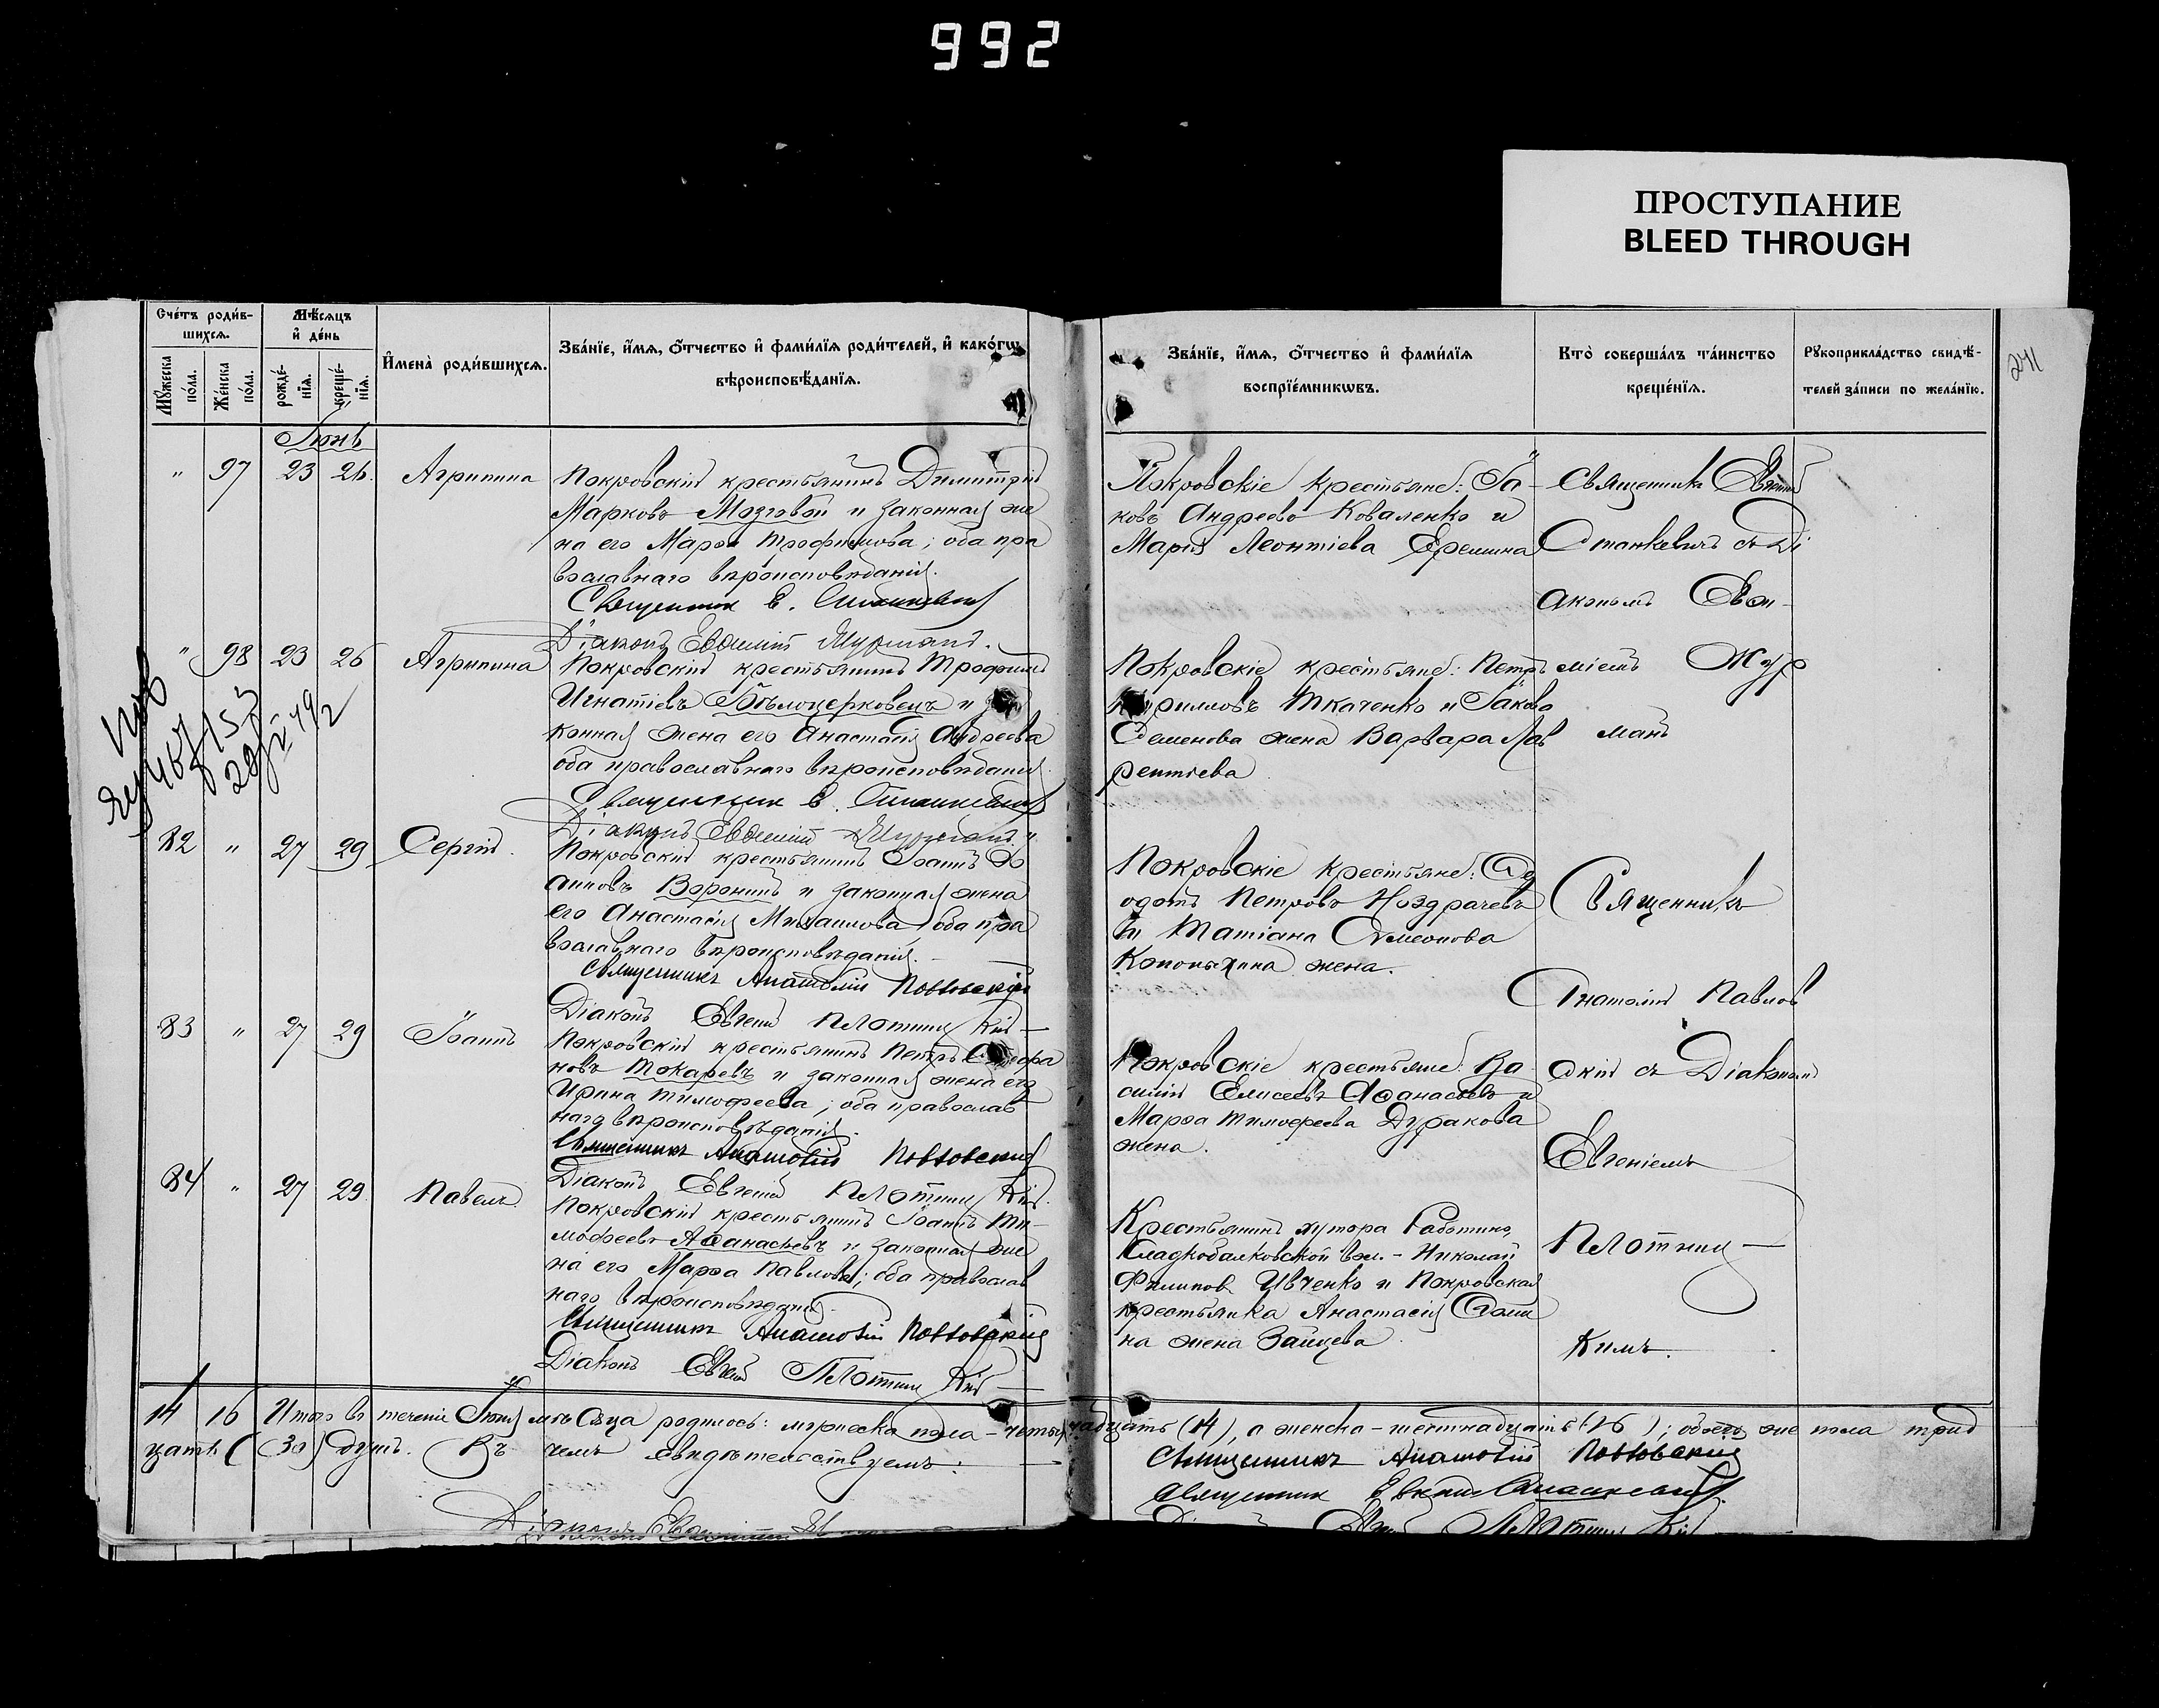 992
ПРОСТУПАНИЕ
BLEED THROUGH
241
Счéтъ роди́в-
шихсѧ.
Мѹ́жеска
по́ла.
Же́нска
по́ла.
Мѣ́сѧцъ
и҆ де́нь
рожде́-
нїѧ.
креще́-
нїѧ.
И҆мена̀ роди́вшихсѧ.
Зва́нїе, и҆́мѧ, ѻ҆́тчество и҆ фами́лїѧ роди́телей, и҆ како́гѡ
вѣроисповѣ́данїѧ.
Зва́нїе, и҆́мѧ, ѻ҆́тчество и҆ фами́лїѧ
воспрїе́мникѡвъ.
Кто̀ соверша́лъ та́инство
креще́нїѧ.
Рѹкоприкла́дство свидѣ́-
телей за́писи по жела́нїю.
Іюнь
" 97 23 26 Агрипина
Покровскій крестьянинъ Димитрій
Марковъ Мозговой и законная же
на его Марѳа Трофимова; оба пра
вославнаго вѣроисповѣданія.
Священник Е. Станкевич
Діаконъ Евѳимій Журманъ.
Покровскіе крестьяне: Іа-
ковъ Андреевъ Коваленко и
Марія Леонтіева Еремина
Священникъ
Станкевичъ съ Ді
акономъ Евѳи-
міемъ Жур
манъ
" 98 23 26 Агрипина
Покровскій крестьянинъ Трофимъ
Игнатіевъ Бѣлоцерковецъ и за
конная жена его Анастасія Андреева
оба православнаго вѣроисповѣданія.
Священник Е. Станкевич
Діаконъ Евѳимій Журманъ
Покровскіе крестьяне: Петръ
Кирилловъ Ткаченко и Іакова
Семенова жена Варвара Лав
рентіева
82 " 27 29 Сергій.
Покровскій крестьянинъ Іоаннъ Іо
анновъ Воронинъ и законная жена
его Анастасія Михаилова, оба пра
вославнаго вѣроисповѣданія.
Священникъ Анатолій Павловскій
Діаконъ Евгеній Плотниц кій —
Покровскіе крестьяне: Ѳе
одотъ Петровъ Ноздрачевъ
и Татіана Симеонова
Конопыхина жена.
Священникъ
Анатолій Павлов
скій съ Діакономъ
Евгеніемъ
Плотниц —
кимъ.
83 " 27 29 Іоаннъ
Покровскій крестьянинъ Петръ Стефа
новъ Токаревъ и законная жена его
Ирина Тимофеева; оба православ
наго вѣроисповѣданія.
Священникъ Анатолій Павловскій
Діаконъ Евгеній Плотниц кій.
Покровскіе крестьяне: Ва
силій Елисеевъ Аѳанасьевъ и
Марѳа Тимофеева Дуракова
жена.
84 " 27 29 Павелъ.
Покровскій крестьянинъ Іоаннъ Ти-
мофеевъ Аѳанасьевъ и законная же
на его Марѳа Павлова; оба православ
наго вѣроисповѣданія.
Священникъ Анатолій Павловскій
Діаконъ Евгеній Плотниц кій —
Крестьянинъ хутора Работино,
Сладкобалковской вол. - Николай
Филипов Ивченко и Покровская
крестьянка Анастасія
на жена Зайцева
14 16 Итого въ теченіе Іюня мѣсяца родилось: мужеска пола - четырнадцать (14), а женска - шестнадцать (16); обоего же пола трид
цать (30) душъ. Въ чемъ свидѣтельствуемъ:
Священникъ Анатолій Павловскій
Священник Евгеній Станкевич.
Діаконъ Евѳимій
Діаконъ Евгеній Плотниц кій